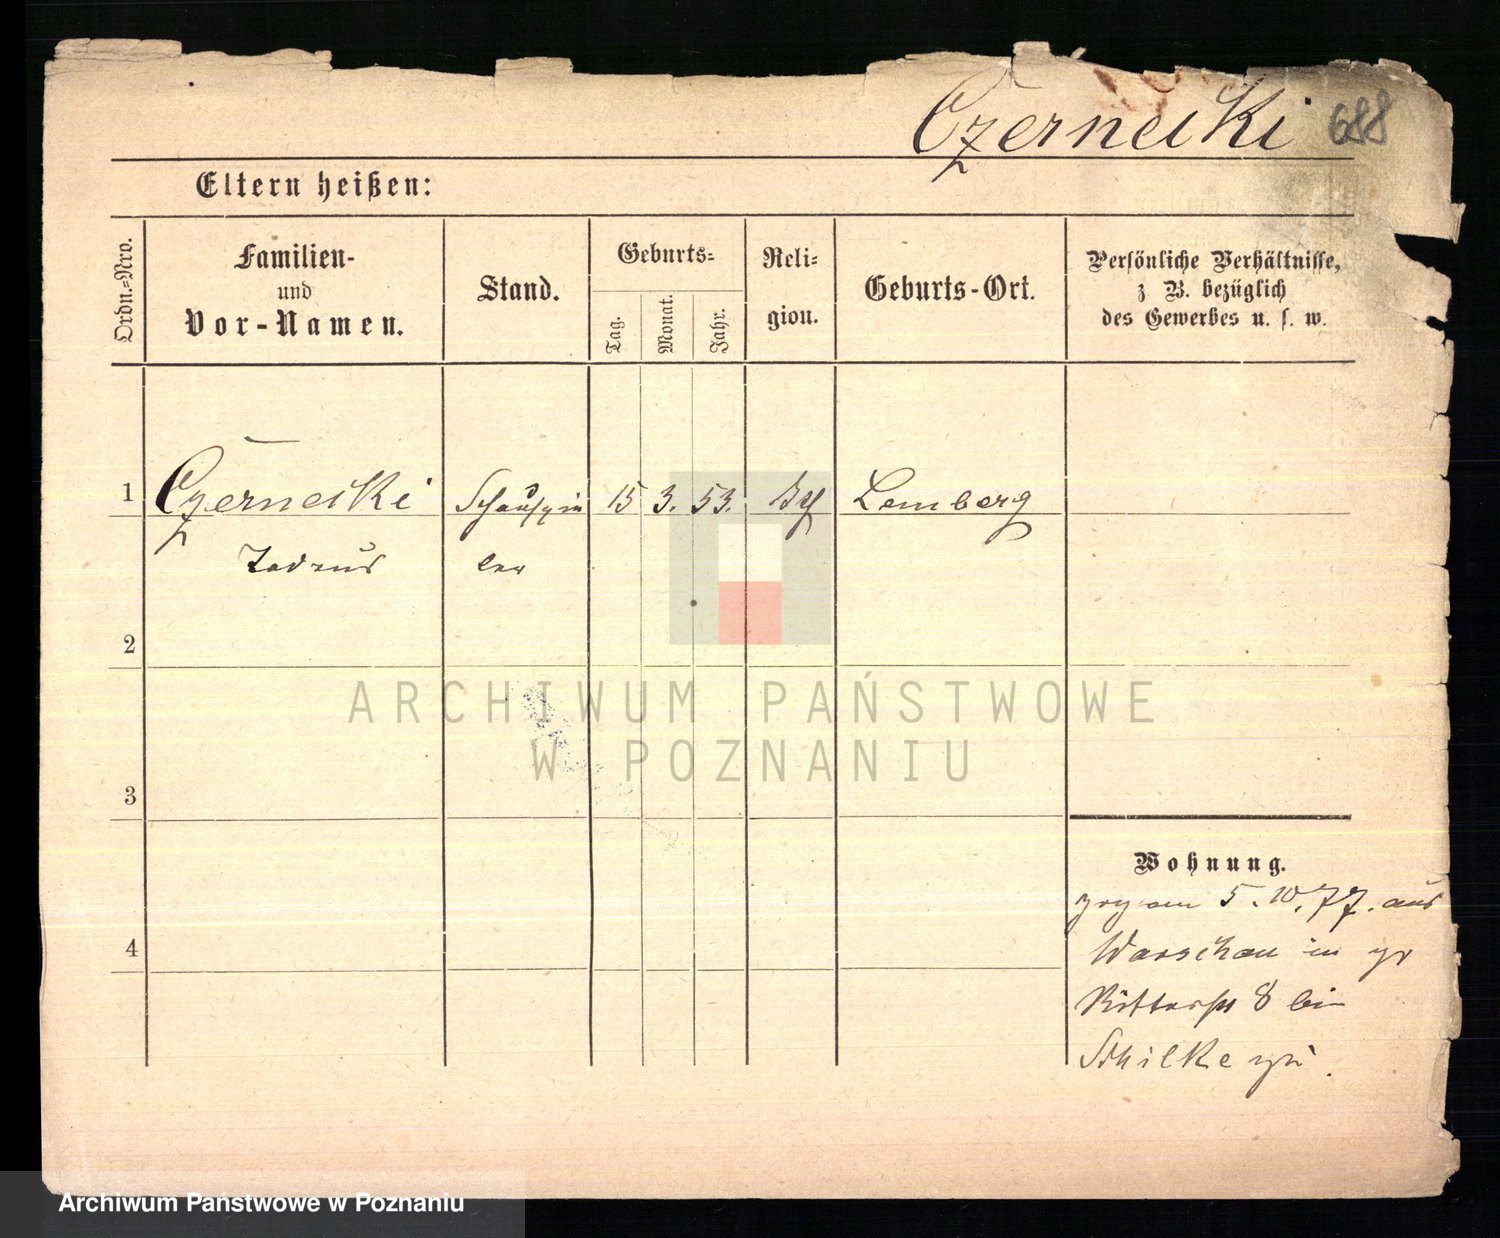 Czerneiki 688
Eltern heißen:
Ordn.-Nro.
Familien-
und
Vor-Namen.
Stand.
Geburts-
Tag.
Monat.
Jahr.
Reli-
gion.
Geburts-Ort.
Persönliche Verhältnisse,
z B. bezüglich
des Gewerbes u. s. w.
1 Czerneiki Schauspie 15 3. 53. Lemberg
Tadeus ler
2
3
4
Wohnung.
am 5. 10. 77. aus
Warschau in
Ritterstr 8 bei
Schilke
ARCHIWUM PAŃSTWOWE
W POZNANIU
Archiwum Państwowe w Poznaniu